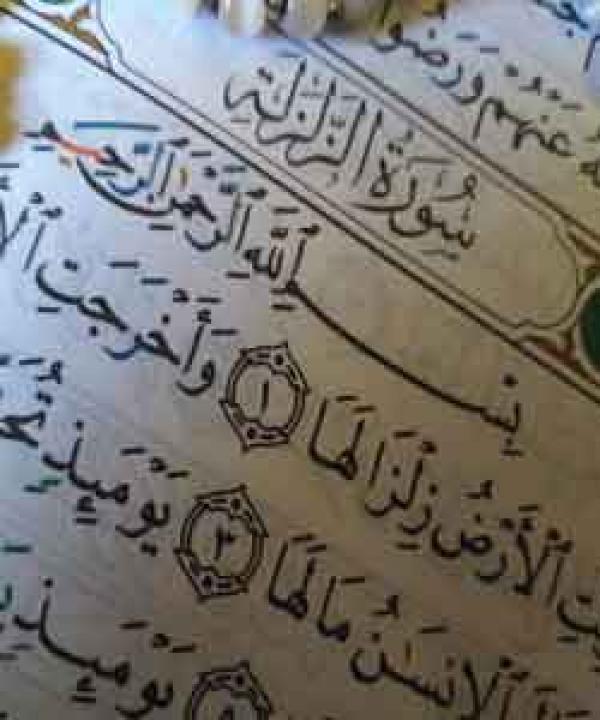 عَنْهُمْ وَرَضُو
سُورَةُ الزَّلْزَلَةِ
بِسْمِ ٱللَّهِ ٱلرَّحْمَٰنِ ٱلرَّحِيمِ
ٱلْأَرْضُ زِلْزَالَهَا ١ وَأَخْرَجَتِ
ٱلْإِنسَٰنُ مَا لَهَا ٣ يَوْمَئِذٍ
٥ يَوْمَئِذٍ